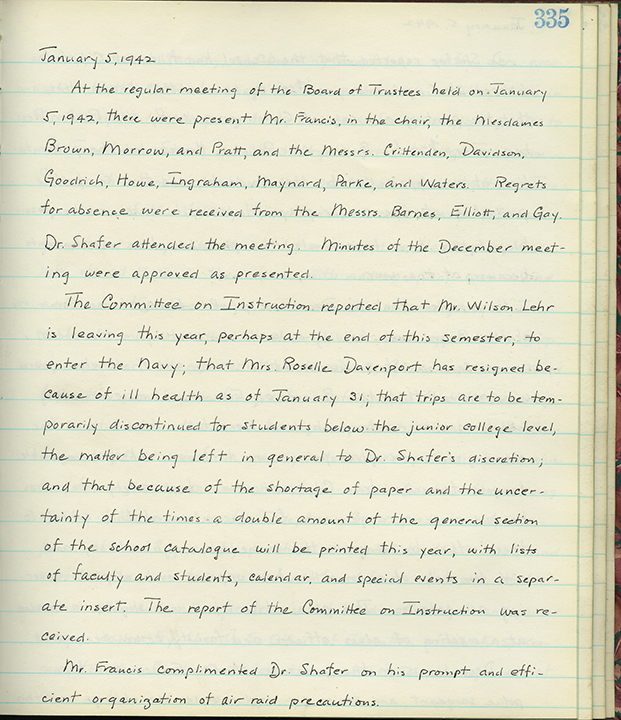 335
January 5, 1942
At the regular meeting of the Board of Trustees held on January
5, 1942, there were present Mr. Francis, in the chair, the Mesdames
Brown, Morrow, and Pratt, and the Messrs. Crittenden, Davidson,
Goodrich, Howe, Ingraham, Maynard, Parke, and Waters. Regrets
for absence were received from the Messrs. Barnes, Elliott, and Gay.
Dr. Shafer attended the meeting. Minutes of the December meet-
ing were approved as presented.
The Committee on Instruction reported that Mr. Wilson Lehr
is leaving this year, perhaps at the end of this semester, to
enter the Navy; that Mrs. Roselle Davenport has resigned be-
cause of ill health as of January 31; that trips are to be tem-
porarily discontinued for students below the junior college level,
the matter being left in general to Dr. Shafer's discretion;
and that because of the shortage of paper and the uncer-
tainty of the times a double amount of the general section
of the school catalogue will be printed this year, with lists
of faculty and students, calendar, and special events in a separ-
ate insert. The report of the Committee on Instruction was re-
ceived.
Mr. Francis complimented Dr. Shafer on his prompt and effi-
cient organization of air raid precautions.